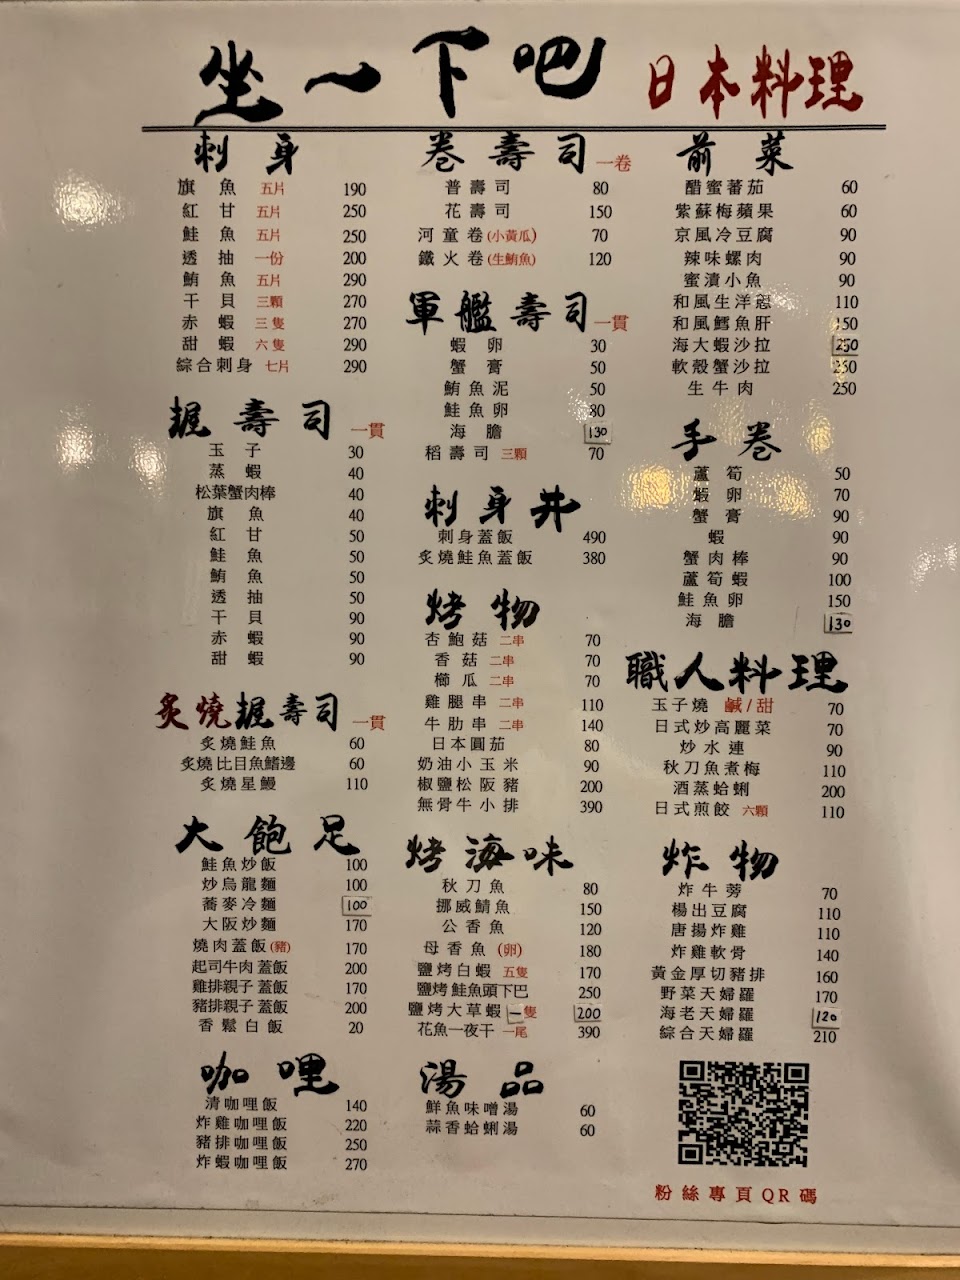 坐一下吧 日本料理
刺身
旗魚 五片 190
紅甘 五片 250
鮭魚 五片 250
透抽 一份 200
鮪魚 五片 290
干貝 三顆 270
赤蝦 三隻 270
甜蝦 六隻 290
綜合刺身 七片 290
握壽司 一貫
玉子 30
蒸蝦 40
松葉蟹肉棒 40
旗魚 40
紅甘 50
鮭魚 50
鮪魚 50
透抽 50
干貝 90
赤蝦 90
甜蝦 90
炙燒握壽司 一貫
炙燒鮭魚 60
炙燒比目魚鰭邊 60
炙燒星鰻 110
大飽足
鮭魚炒飯 100
炒烏龍麵 100
蕎麥冷麵 100
大阪炒麵 170
燒肉蓋飯(豬) 170
起司牛肉蓋飯 200
雞排親子蓋飯 170
豬排親子蓋飯 200
香鬆白飯 20
咖哩
清咖哩飯 140
炸雞咖哩飯 220
豬排咖哩飯 250
炸蝦咖哩飯 270
卷壽司 一卷
普壽司 80
花壽司 150
河童卷(小黃瓜) 70
鐵火卷(生鮪魚) 120
軍艦壽司 一貫
蝦卵 30
蟹膏 50
鮪魚泥 50
鮭魚卵 80
海膽 130
稻壽司 三顆 70
刺身丼
刺身蓋飯 490
炙燒鮭魚蓋飯 380
烤物
杏鮑菇 二串 70
香菇 二串 70
櫛瓜 二串 70
雞腿串 二串 110
牛肋串 二串 140
日本圓茄 80
奶油小玉米 90
椒鹽松阪豬 200
無骨牛小排 390
烤海味
秋刀魚 80
挪威鯖魚 150
公香魚 120
母香魚(卵) 180
鹽烤白蝦 五隻 170
鹽烤鮭魚頭下巴 250
鹽烤大草蝦 一隻 200
花魚一夜干 一尾 390
湯品
鮮魚味噌湯 60
蒜香蛤蜊湯 60
前菜
醋蜜蕃茄 60
紫蘇梅蘋果 60
京風冷豆腐 90
辣味螺肉 90
蜜漬小魚 90
和風生洋蔥 110
和風鱈魚肝 150
海大蝦沙拉 250
軟殼蟹沙拉 250
生牛肉 250
手卷
蘆筍 50
蝦卵 70
蟹膏 90
蝦 90
蟹肉棒 90
蘆筍蝦 100
鮭魚卵 150
海膽 130
職人料理
玉子燒 鹹/甜 70
日式炒高麗菜 70
炒水連 90
秋刀魚煮梅 110
酒蒸蛤蜊 200
日式煎餃 六顆 110
炸物
炸牛蒡 70
楊出豆腐 110
唐揚炸雞 110
炸雞軟骨 140
黃金厚切豬排 160
野菜天婦羅 170
海老天婦羅 120
綜合天婦羅 210
粉絲專頁QR碼